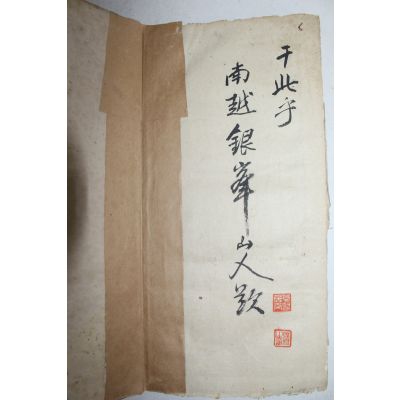 于此乎
南越銀峯山人題